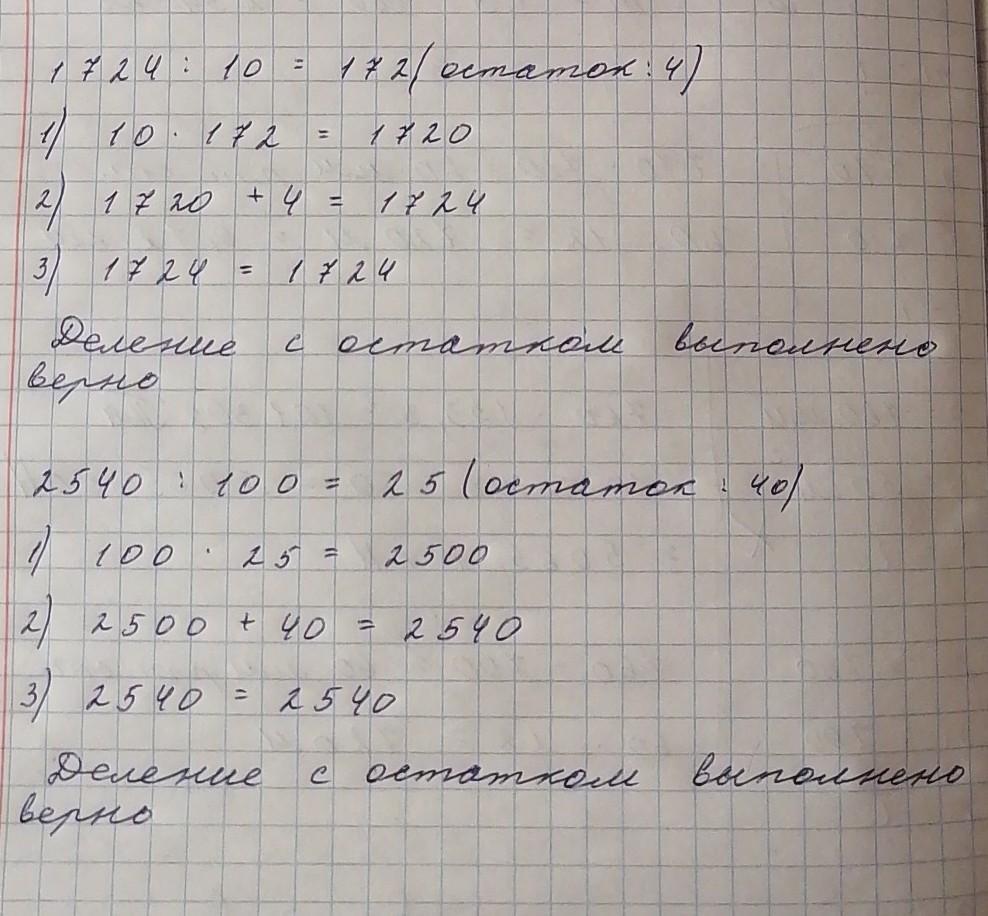 1724 : 10 = 172 (остаток: 4)
1) 10 · 172 = 1720
2) 1720 + 4 = 1724
3) 1724 = 1724
Деление с остатком выполнено
верно
2540 : 100 = 25 (остаток : 40)
1) 100 · 25 = 2500
2) 2500 + 40 = 2540
3) 2540 = 2540
Деление с остатком выполнено
верно